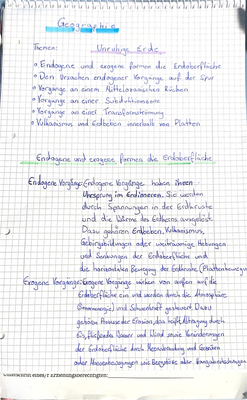 Geographie
Themen: Unruhige Erde
Endogene und exogene formen die Erdoberfläche
Den Ursachen endogener Vorgänge auf der Spur
Vorgänge an einem Mittelozeanischen Rücken
Vorgänge an einer Subduktionszone
Vorgänge an einer Transformstörung
Vulkanismus und Erdbeben innerhalb von Platten
Endogene und exogene formen die Erdoberfläche
Endogene Vorgänge: Endogene Vorgänge haben ihren
Ursprung im Erdinneren. Sie werden
durch Spannungen in der Erdkruste
und die Wärme des Erdkerns ausgelöst.
Dazu gehören Erdbeben, Vulkanismus,
Gebirgsbildungen oder weiträumige Hebungen
und Senkungen der Erdoberfläche und
die horizontalen Bewegung der Erdkruste (Plattenbewegung
Exogene Vorgänge: Exogene Vorgänge wirken von außen auf die
Erdoberfläche ein und werden durch die Atmosphäre,
und Schwerkraft gesteuert. Dazu
gehören Prozesse der Erosion, das durch
Eis, fließendes Wasser und Wind sowie Veränderungen
der Erdoberfläche durch
oder Massenbewegungen wie Bergstürze oder Hangabrutschungen